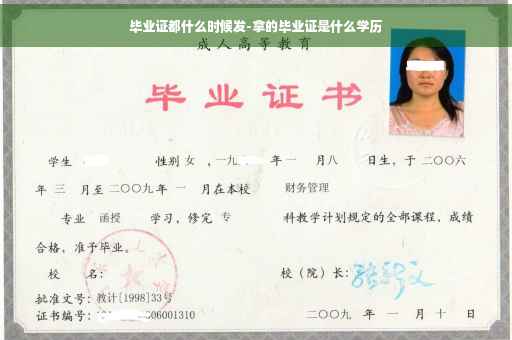 毕业证都什么时候发-拿的毕业证是什么学历
成人高等教育
毕业证书
学生 性别 女 ，一九 年 一 月八 日生，于 二〇〇六
年 三 月至 二〇〇九 年 一 月在本校 财务管理
专业 函授 学习，修完 专 科教学计划规定的全部课程，成绩
合格，准予毕业。
校 名： 校（院）长：
批准文号：教计[1998]33号
证书编号： 06001310 二〇〇九 年 一 月 十 日